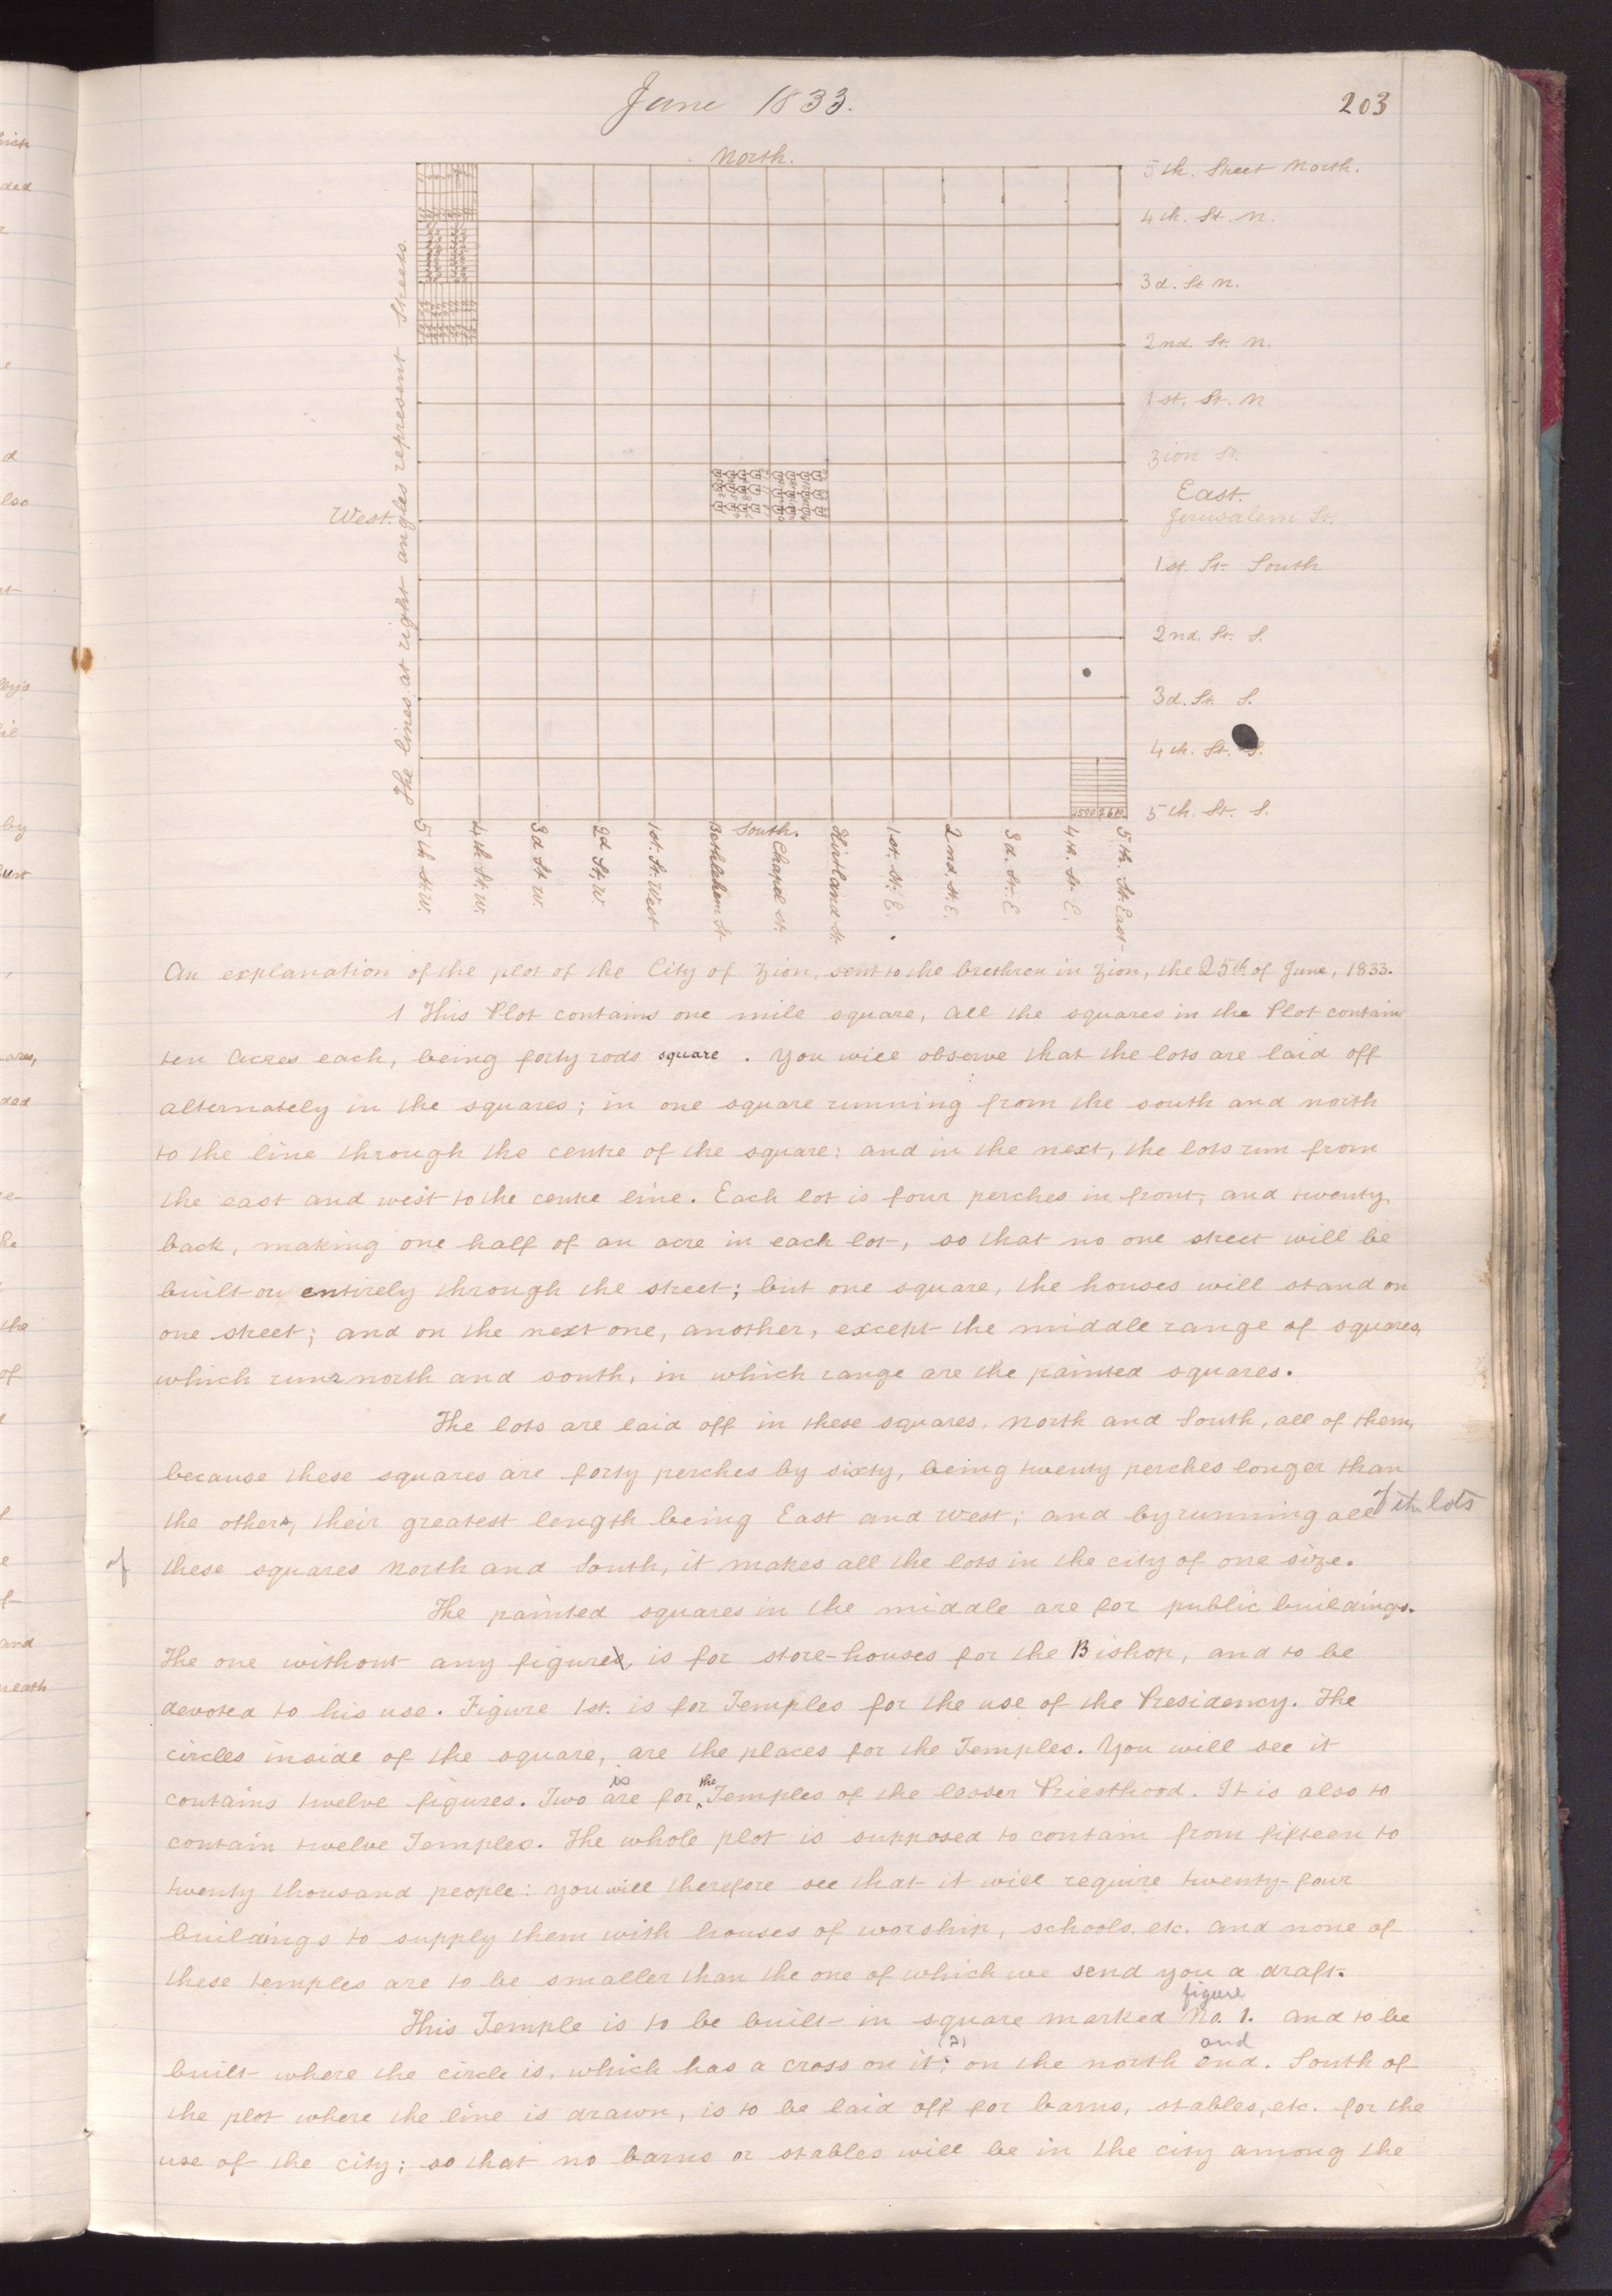 June 1833.
203
North.
5th. Street North.
4th. St. N.
3d. St N.
2nd. St. N.
1st. St. N
Zion St.
East.
West.
Jerusalem St.
1st. St. South
2nd. St. S.
3d. St. S.
4th. St. S.
5th. St. S.
The lines at right angles represent Streets.
South.
5th St. W.
4th St. W.
3d St W.
2d St. W.
1st. St. West
Bethlehem St
Chapel St.
Kirtland St.
1st. St. E.
2nd. St. E.
3d. St. E
4th. St. E.
5th. St. East
An explanation of the plot of the City of Zion, sent to the brethren in Zion, the 25th of June, 1833.
1 This Plot contains one mile square, all the squares in the Plot contain
ten Acres each, being forty rods square. You will observe that the lots are laid off
alternately in the squares; in one square running from the south and north
to the line through the centre of the square: and in the next, the lots run from
the east and west to the centre line. Each lot is four perches in front, and twenty
back, making one half of an acre in each lot, so that no one street will be
built on entirely through the street; but one square, the houses will stand on
one street; and on the next one, another, except the middle range of squares,
which runs north and south, in which range are the painted squares.
The lots are laid off in these squares, North and South, all of them,
because these squares are forty perches by sixty, being twenty perches longer than
the others, their greatest length being East and West; and by running all the lots
of these squares North and South, it makes all the lots in the city of one size.
The painted squares in the middle are for public buildings.
The one without any figures, is for store-houses for the Bishop, and to be
devoted to his use. Figure 1st. is for Temples for the use of the Presidency. The
circles inside of the square, are the places for the Temples. You will see it
contains twelve figures. Two are for the Temples of the lesser Priesthood. It is also to
is
contain twelve Temples. The whole plot is supposed to contain from fifteen to
twenty thousand people: you will therefore see that it will require twenty-four
buildings to supply them with houses of worship, schools, etc. and none of
these temples are to be smaller than the one of which we send you a draft.
figure
This Temple is to be built in square marked No. 1. and to be
(2) and
built where the circle is, which has a cross on it; on the north end. South of
the plot where the line is drawn, is to be laid off for barns, stables, etc. for the
use of the city; so that no barns or stables will be in the city among the